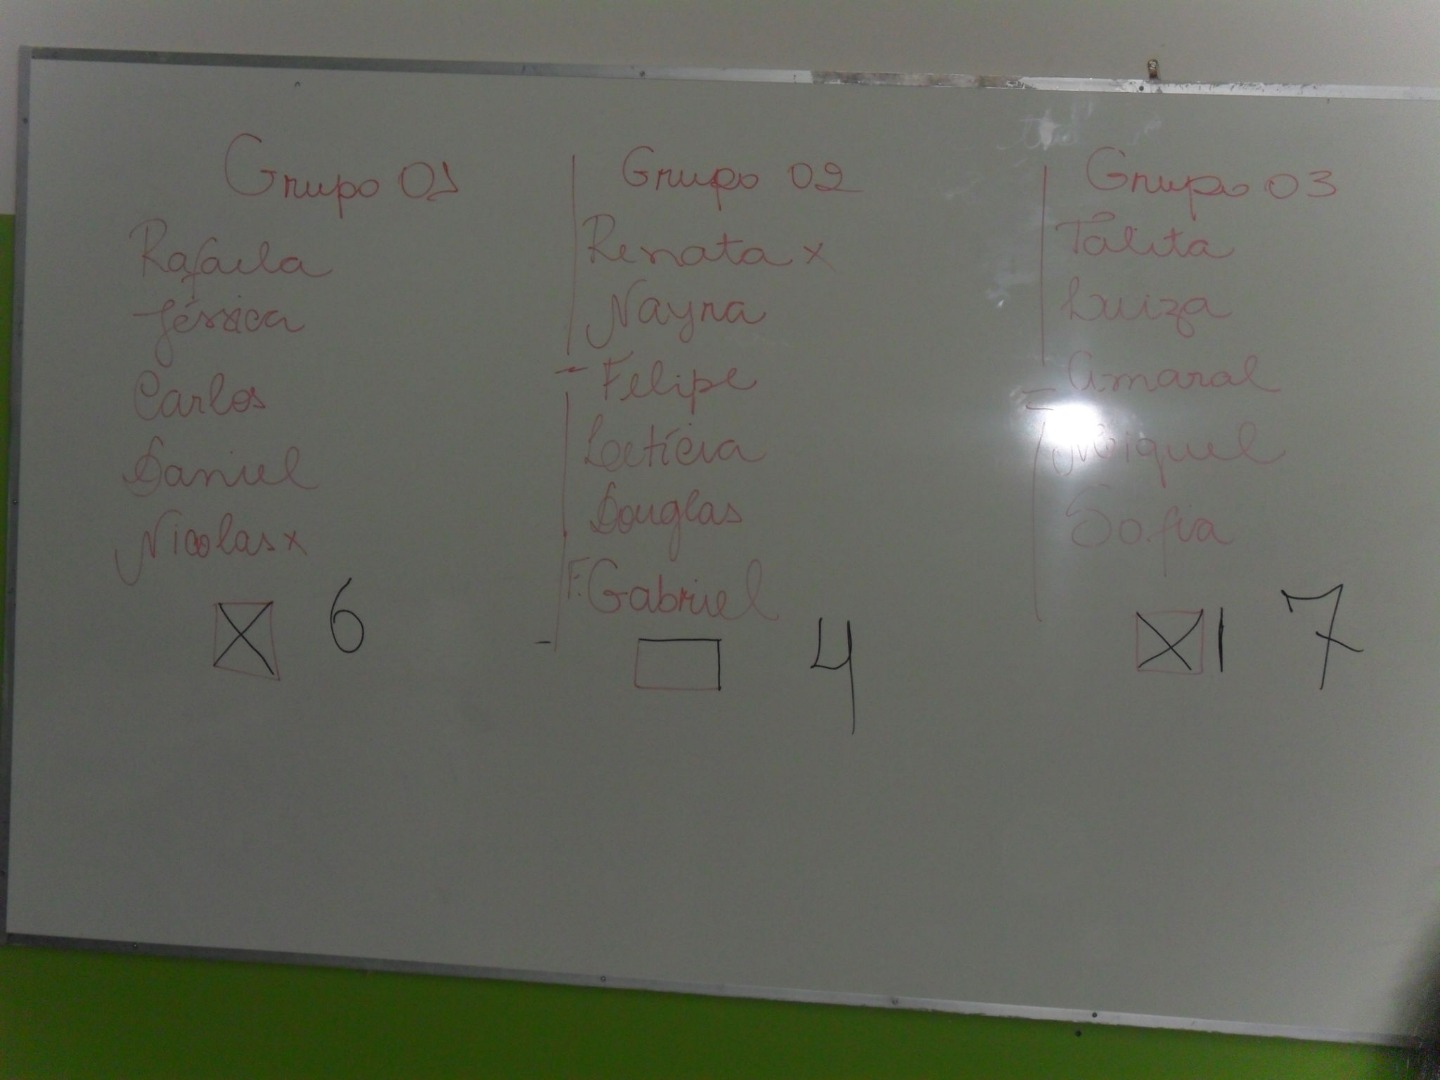 Grupo 01
Rafaela
Jéssica
Carlos
Daniel
Nicolas x
6
Grupo 02
Renata x
Nayra
Felipe
Letícia
Douglas
F. Gabriel
4
Grupo 03
Talita
Luiza
Amaral
Miguel
Sofia
7